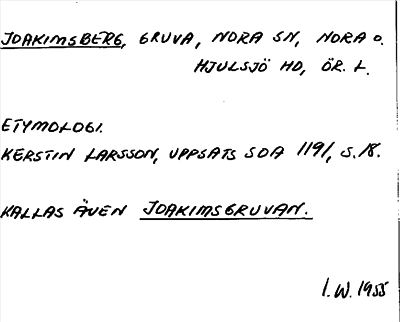 JOAKIMSBERG, GRUVA, NORA SN, NORA O.
HJULSJÖ HD, ÖR. L.
ETYMOLOGI.
KERSTIN LARSSON, UPPSATS SOA 1191, S. 18.
KALLAS ÄVEN JOAKIMSGRUVAN.
I.W. 1955